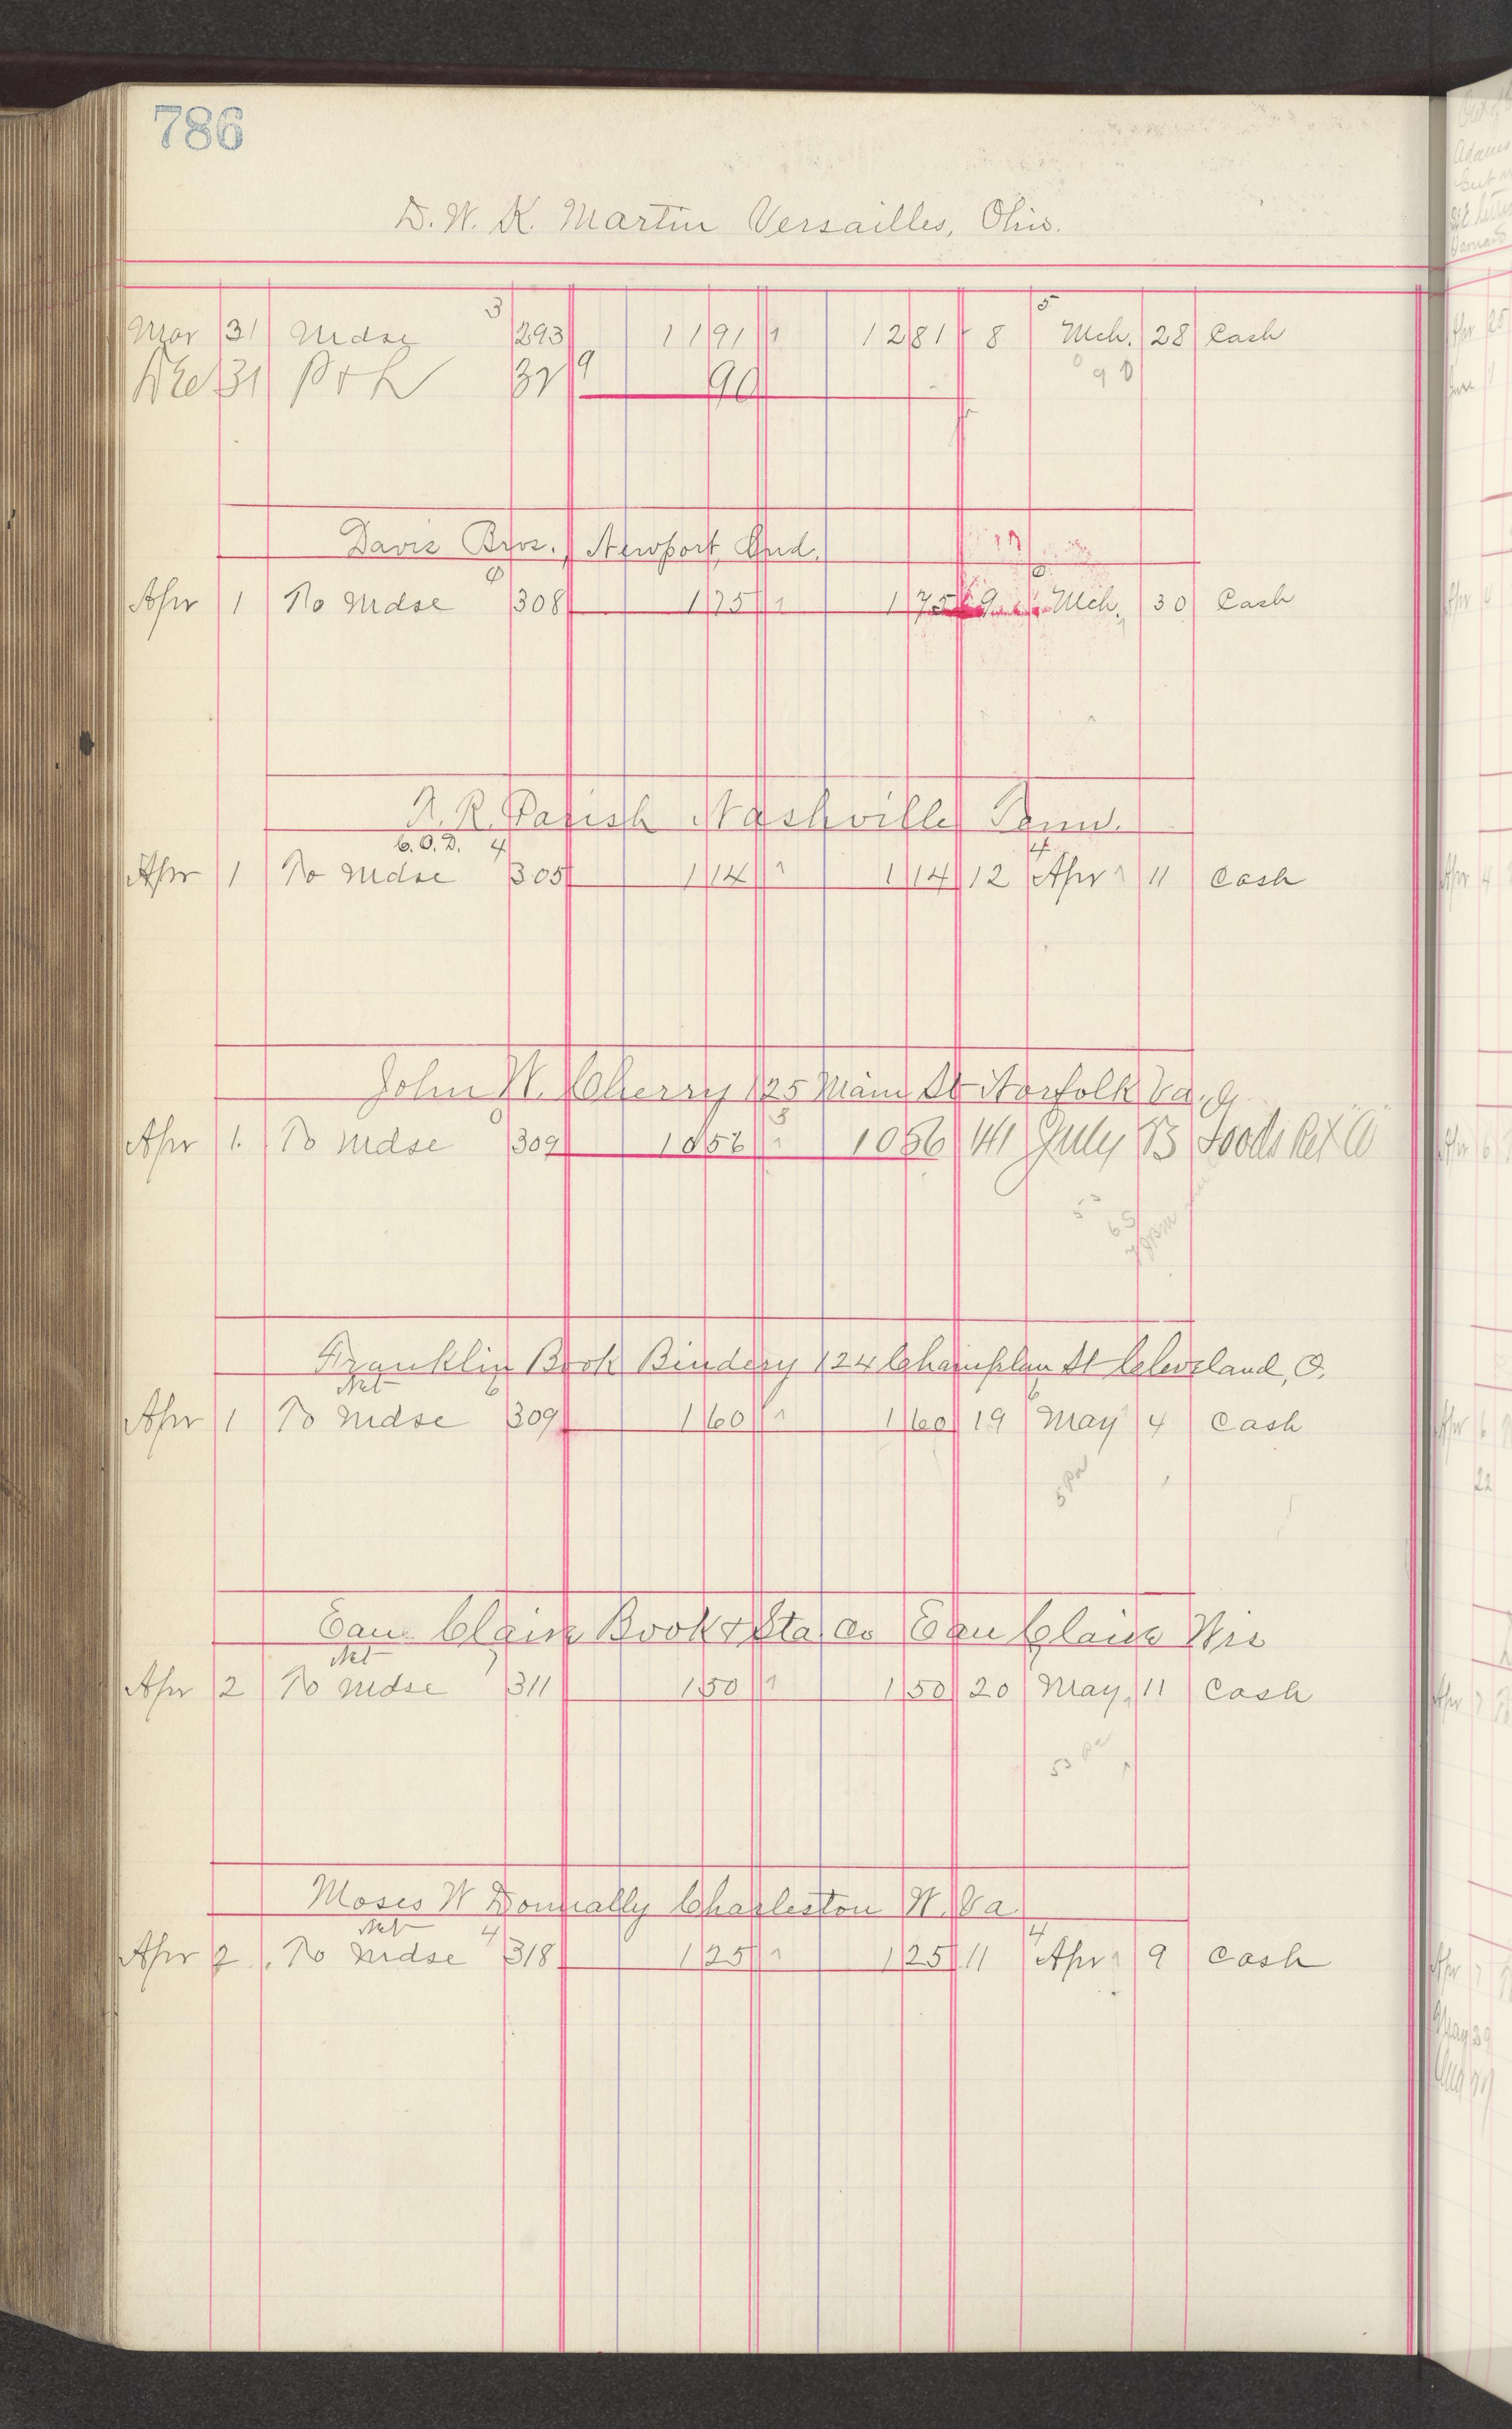 786
D. W. K. Martin Versailles, Ohio.
3 5
Mar 31 Mdse 293 11 91 1 12 81 8 Mch. 28 Cash
Dec 31 P & L 32 9 90
9 0
Davis Bros., Newport, Ind.
Apr 1 To Mdse 308 1 75 1 1 75 9 Mch. 30 Cash
A. R. Parish Nashville Tenn.
C.O.D. 4 4
Apr 1 To Mdse 305 1 14 1 1 14 12 Apr 11 Cash
John W. Cherry 125 Main St Norfolk Va.
Apr 1. To Mdse 309 10 56 1 10 56 141 July 13 Goods Ret
Franklin Book Bindery 124 Champlain St Cleveland, O.
Net 6 6
Apr 1 To Mdse 309 1 60 1 1 60 19 May 4 Cash
Eau Claire Book & Sta Co Eau Claire Wis
Net 7
Apr 2 To Mdse 311 1 50 1 1 50 20 May 11 Cash
Moses W Donnally Charleston W. Va
Net 4 4
Apr 2. To Mdse 318 1 25 1 1 25 11 Apr 9 Cash